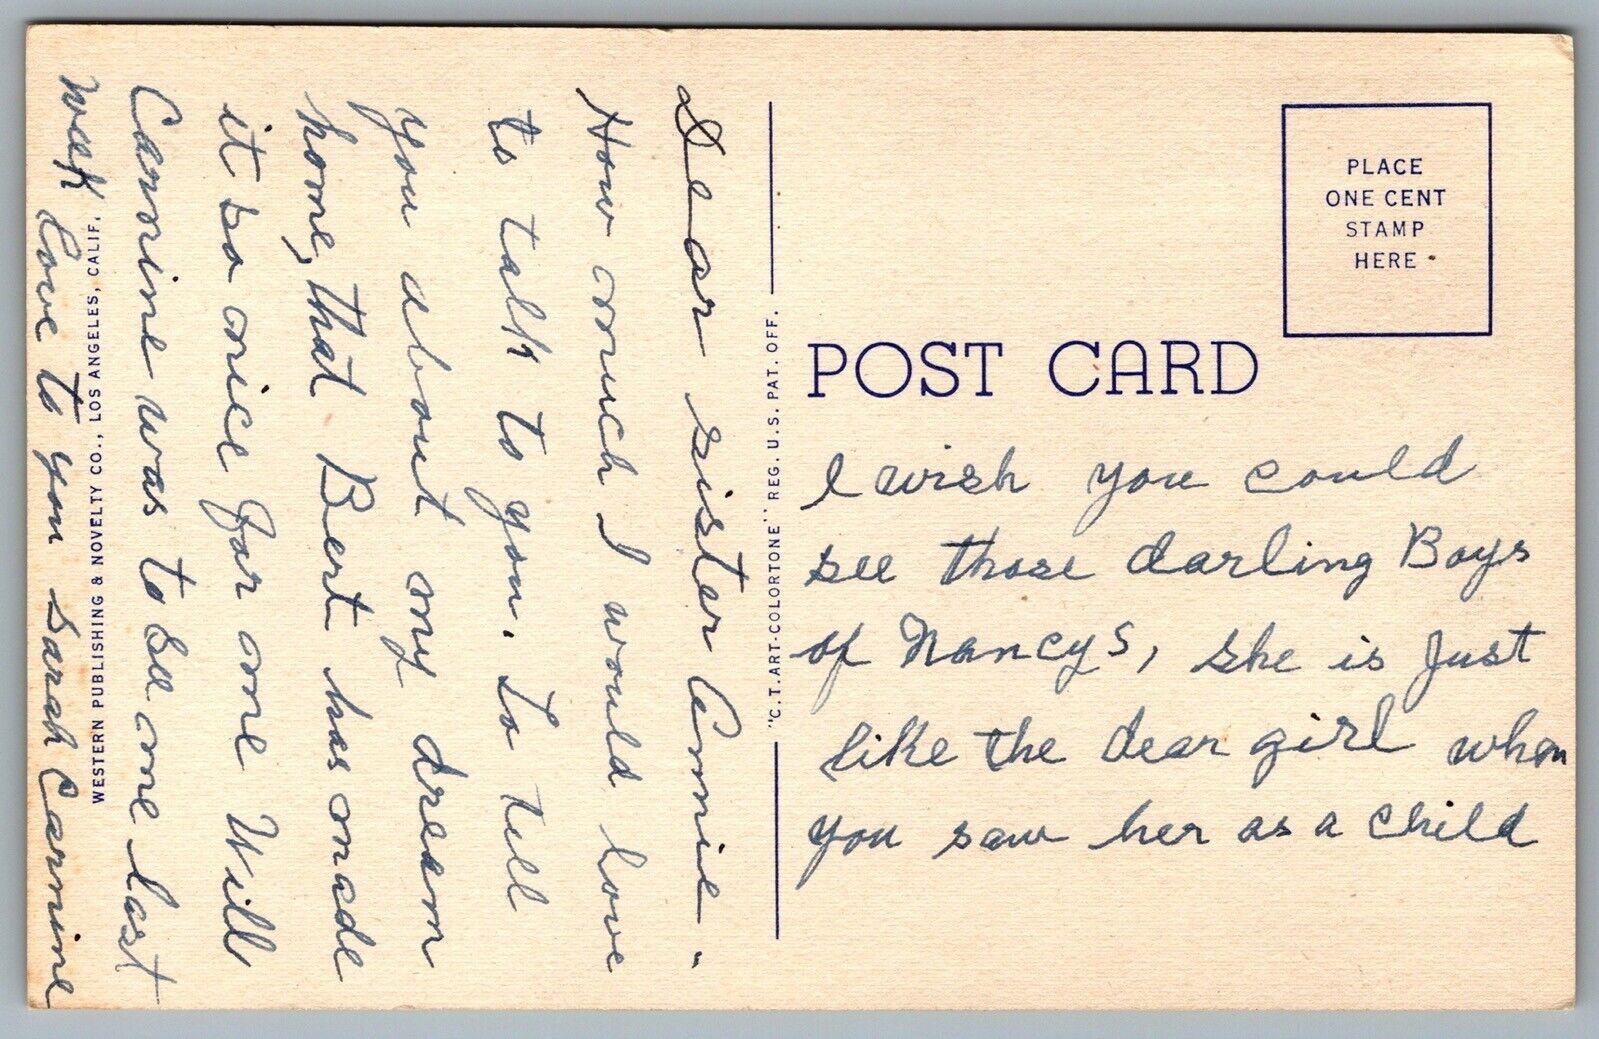 Dear sister Annie"
How much I would love
to talk to you. To tell
you about my dream
home, that Bert has made
it so nice for me Will
Carmine was to see me last
week Love to you Sarah Carmine
WESTERN PUBLISHING & NOVELTY CO., LOS ANGELES, CALIF.
"C.T. ART-COLORTONE" REG. U.S. PAT. OFF.
PLACE
ONE CENT
STAMP
HERE
POST CARD
I wish you could
see those darling Boys
of Nancys, she is Just
like the dear girl when
you saw her as a child